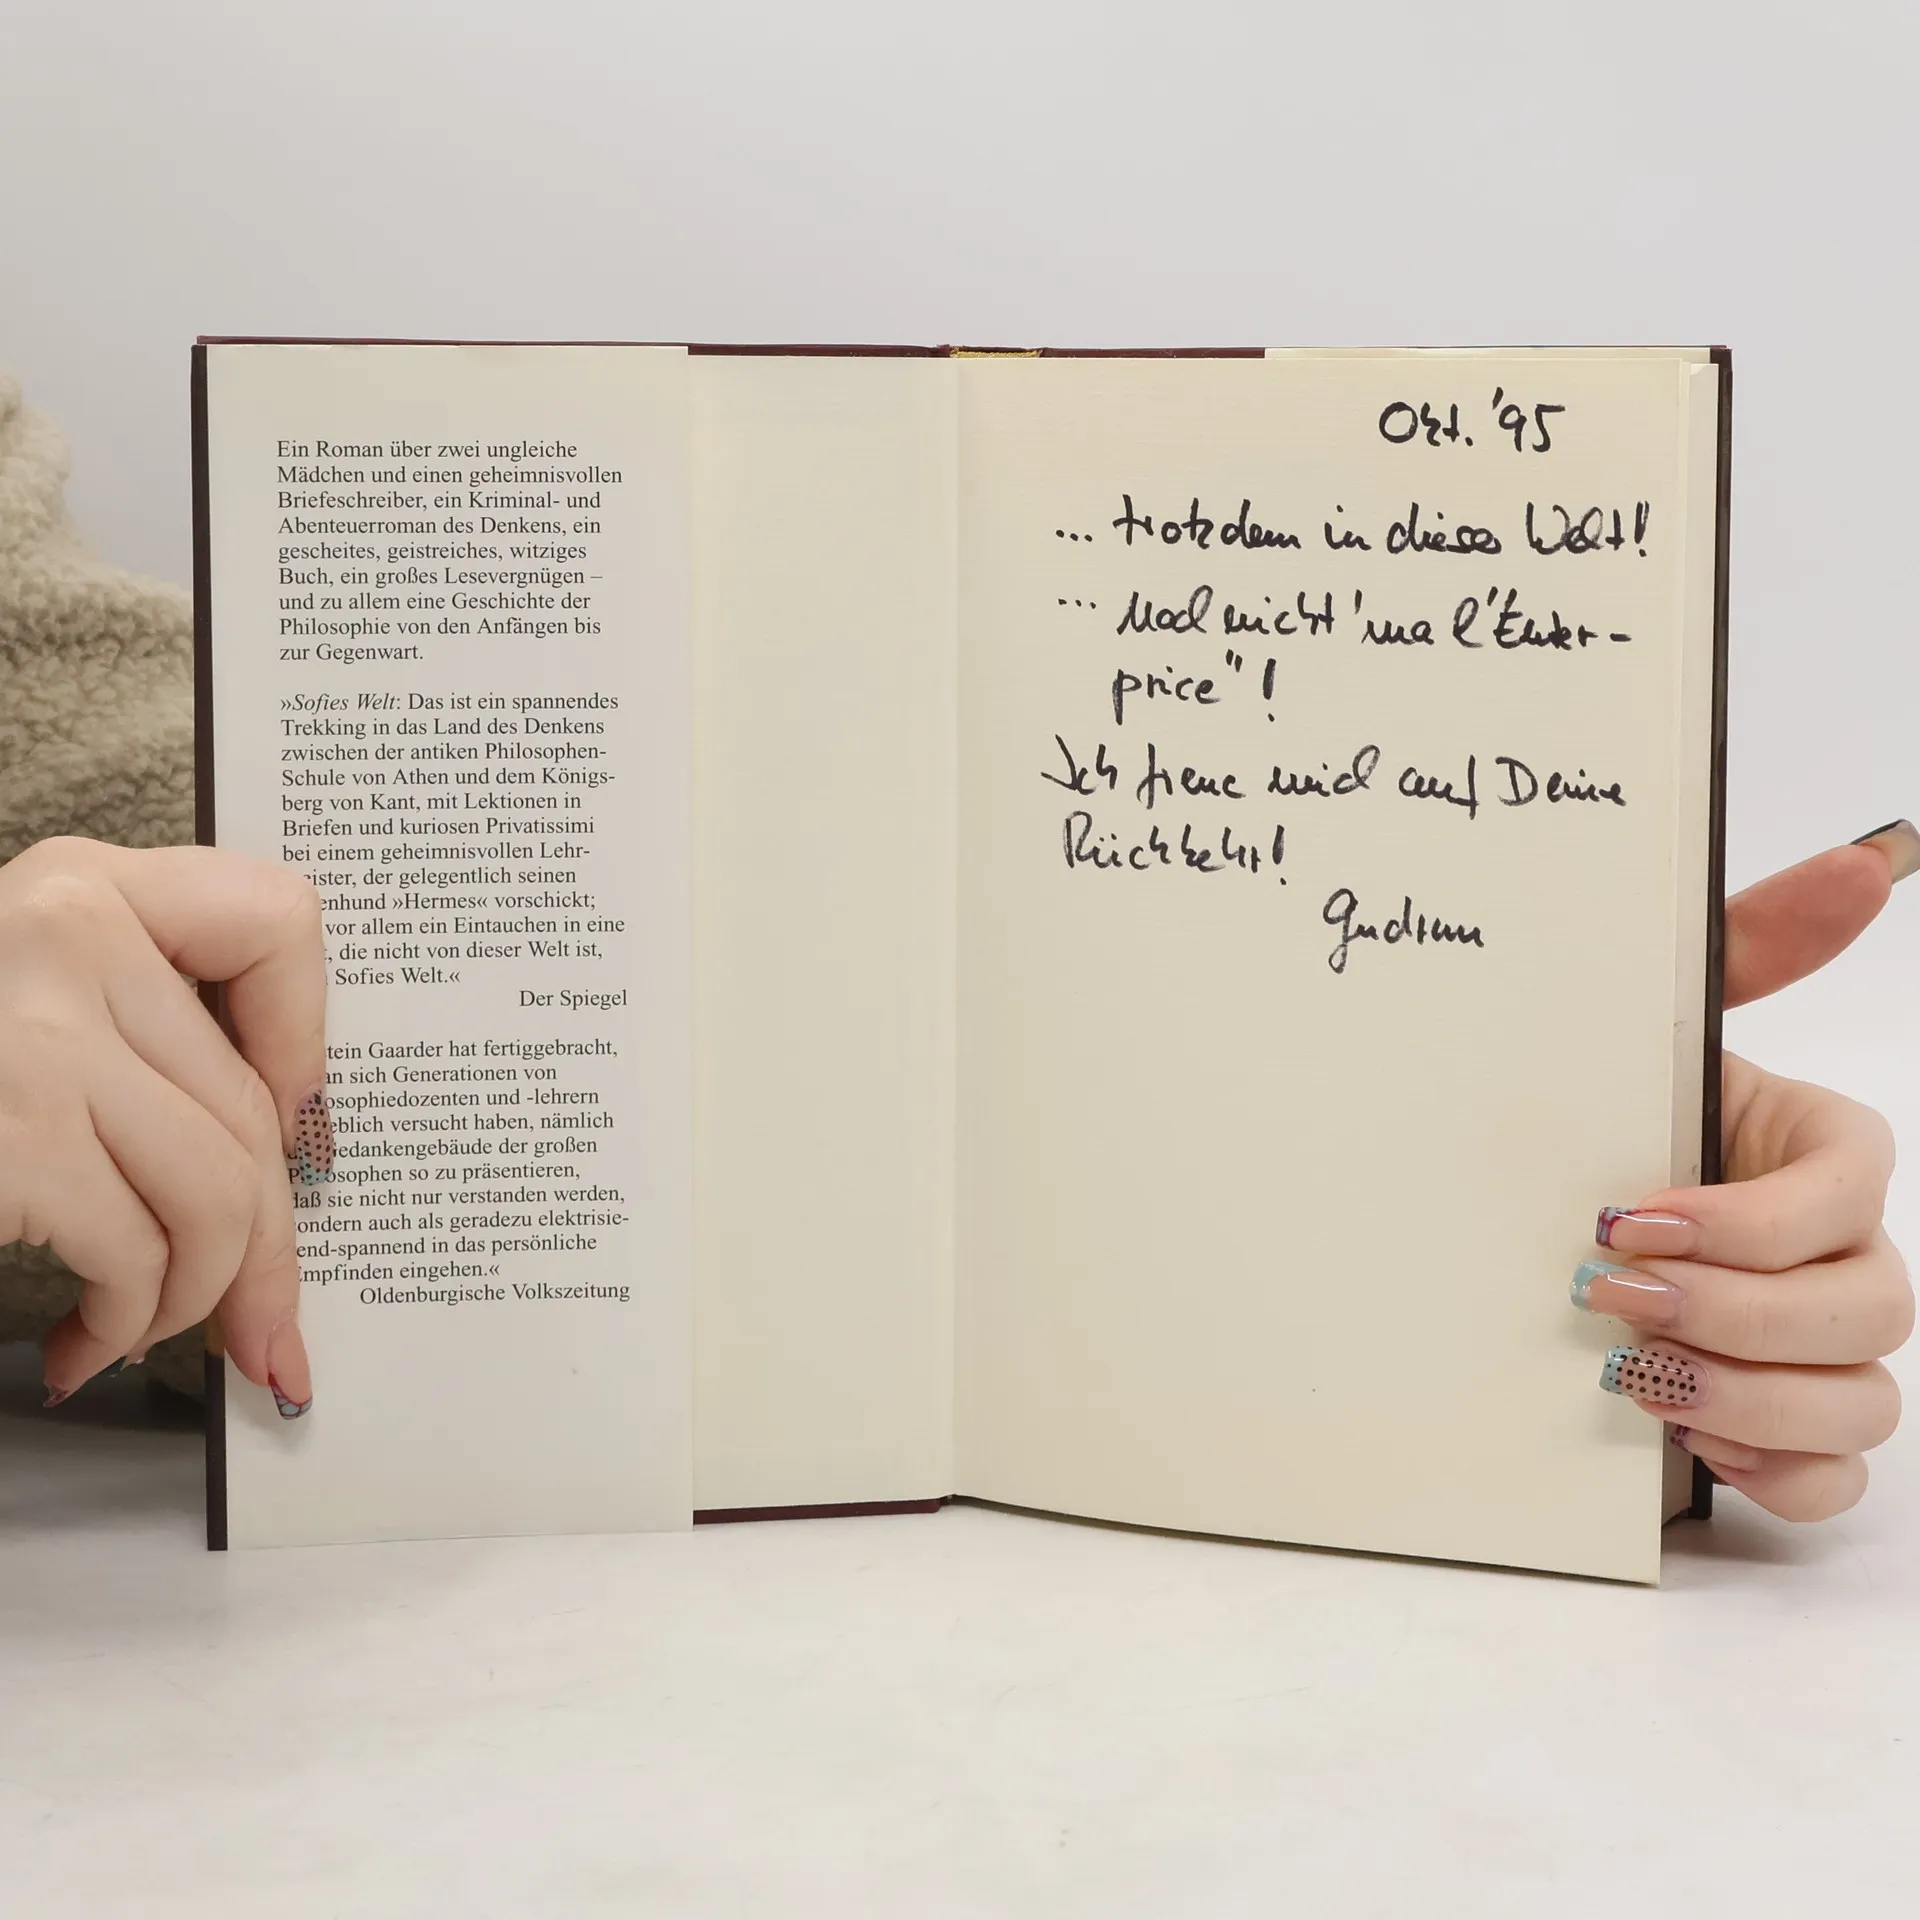 Ein Roman über zwei ungleiche
Mädchen und einen geheimnisvollen
Briefeschreiber, ein Kriminal- und
Abenteuerroman des Denkens, ein
gescheites, geistreiches, witziges
Buch, ein großes Lesevergnügen –
und zu allem eine Geschichte der
Philosophie von den Anfängen bis
zur Gegenwart.
»Sofies Welt: Das ist ein spannendes
Trekking in das Land des Denkens
zwischen der antiken Philosophen-
Schule von Athen und dem Königs-
berg von Kant, mit Lektionen in
Briefen und kuriosen Privatissimi
bei einem geheimnisvollen Lehr-
eister, der gelegentlich seinen
enhund »Hermes« vorschickt;
vor allem ein Eintauchen in eine
t, die nicht von dieser Welt ist,
Sofies Welt.«
Der Spiegel
tein Gaarder hat fertiggebracht,
an sich Generationen von
osophiedozenten und -lehrern
eblich versucht haben, nämlich
edankengebäude der großen
osophen so zu präsentieren,
daß sie nicht nur verstanden werden,
ondern auch als geradezu elektrisie-
end-spannend in das persönliche
mpfinden eingehen.«
Oldenburgische Volkszeitung
Okt. '95
... trotzdem in dieser Welt!
... nicht 'ma l'Enter-
price"!
Ich freue mich auf Deine
Rückkehr!
Gudrun